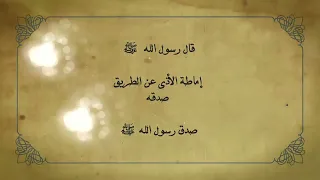 قال رسول الله ﷺ
إماطة الأذى عن الطريق
صدقه
صدق رسول الله ﷺ